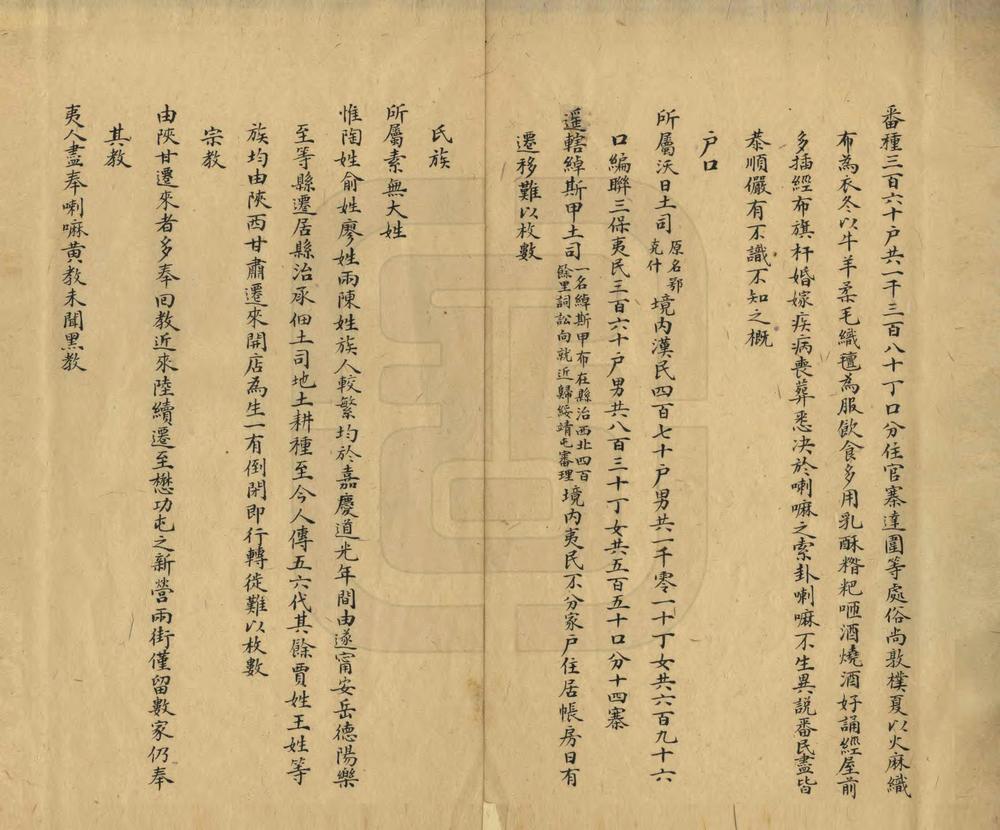 番種三百六十戶共一千三百八十丁口分住官寨達圍等處俗尚敦樸夏以火麻織
布為衣冬以牛羊柔毛織氊為服飲食多用乳酥糌粑咂酒燒酒好誦經屋前
多插經布旗杆婚嫁疾病喪葬悉決於喇嘛之索卦喇嘛不生異說番民盡皆
恭順儼有不識不知之概
戶口
所屬沃日土司原名鄂克什境內漢民四百七十戶男共一千零一十丁女共六百九十六
口編聯三保夷民三百六十戶男共八百三十丁女共五百五十口分十四寨
遥轄綽斯甲土司一名綽斯甲布在縣治西北四百餘里詞訟向就近歸綏靖屯審理境內夷民不分家戶住居帳房日有
遷移難以枚數
氏族
所屬素無大姓
惟陶姓俞姓廖姓兩陳姓族人較繁均於嘉慶道光年間由遂甯安岳德陽樂
至等縣遷居縣治承佃土司地土耕種至今人傳五六代其餘賈姓王姓等
族均由陝西甘肅遷來開店為生一有倒閉即行轉徙難以枚數
宗教
由陝甘遷來者多奉回教近來陸續遷至懋功屯之新營兩街僅留數家仍奉
其教
夷人盡奉喇嘛黃教未聞黑教